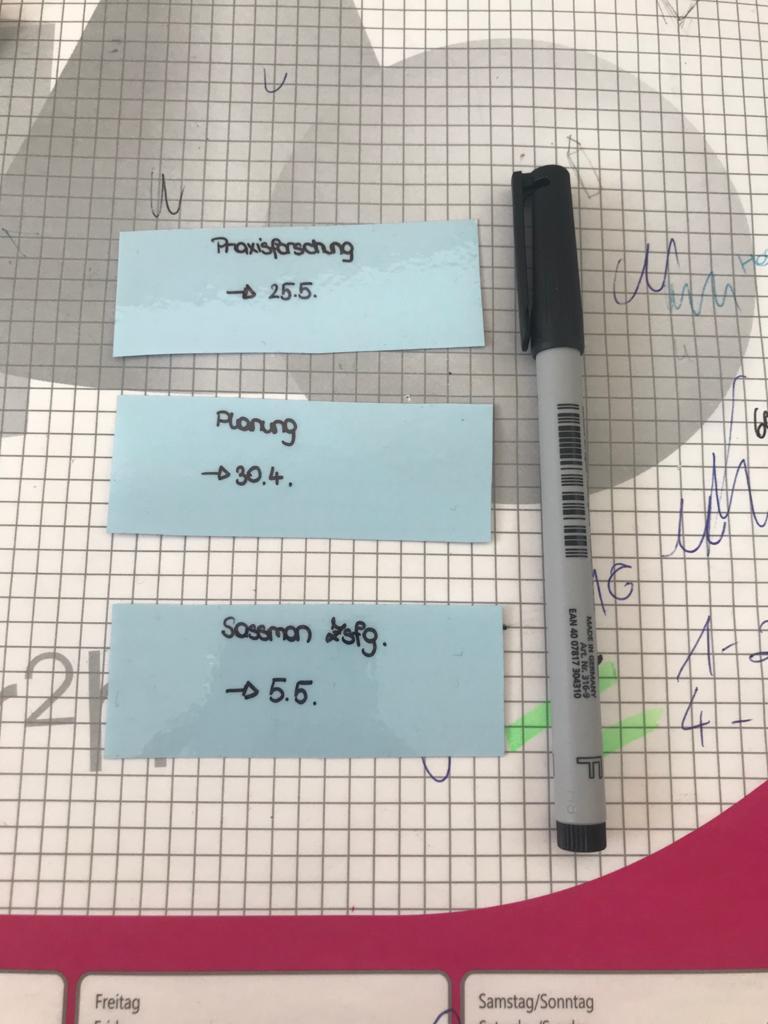 Praxisforschung
→ 25.5.
Planung
→ 30.4.
Sassman Zsfg.
→ 5.5.
MADE IN GERMANY
Art. Nr. 316-9
EAN 40 07817 304310
F
1-2
4-
Freitag
Samstag/Sonntag